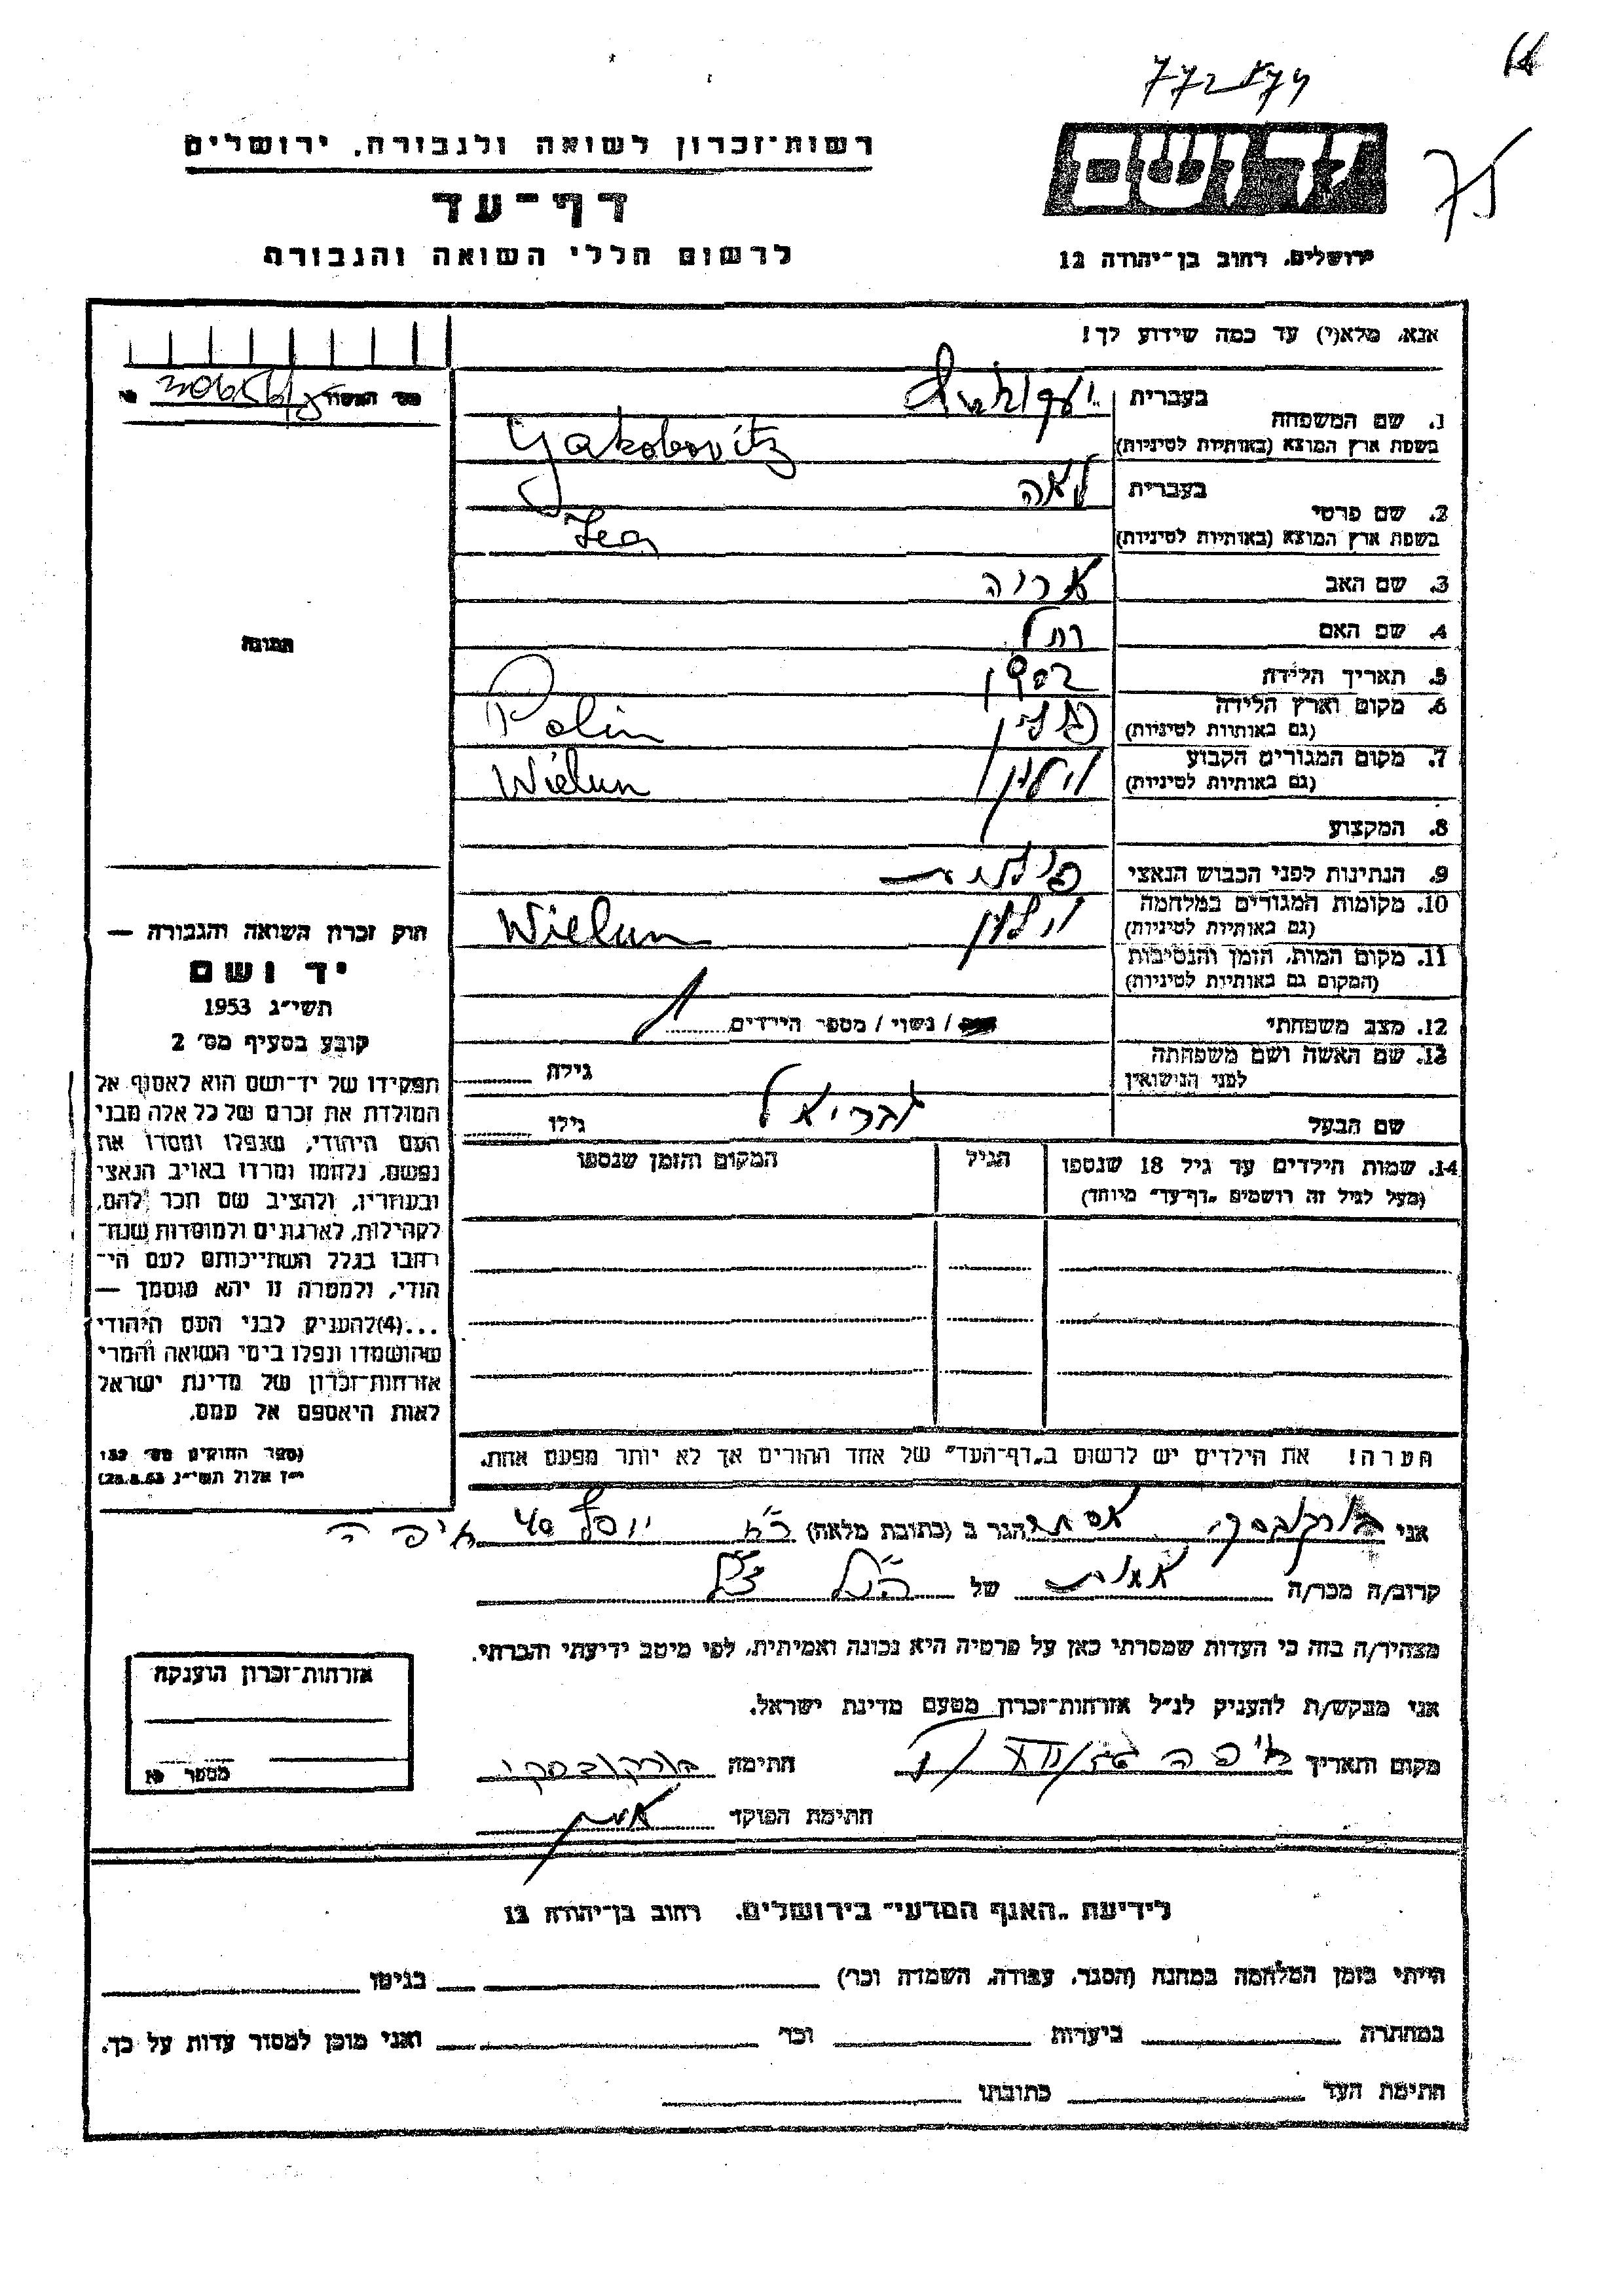 רשות־זכרון לשואה ולגבורה, ירושלים
דף־עד
לרשום חללי השואה והגבורה
ירושלים, רחוב בן־יהודה 12
75
אנא, מלא(י) עד כמה שידוע לך!
1. שם המשפחה בעברית
בשפת ארץ המוצא (באותיות לטיניות) Yakobovitz
2. שם פרטי בעברית לאה
בשפת ארץ המוצא (באותיות לטיניות) Lea
3. שם האב אריה
4. שם האם רחל
5. תאריך הלידה
6. מקום וארץ הלידה פולין Polin
(גם באותיות לטיניות)
7. מקום המגורים הקבוע וילון Wielun
(גם באותיות לטיניות)
8. המקצוע
9. הנתינות לפני הכבוש הנאצי פולנית
10. מקומות המגורים במלחמה וילון Wielun
(גם באותיות לטיניות)
11. מקום המות, הזמן והנסיבות
(המקום גם באותיות לטיניות)
12. מצב משפחתי / נשוי / מספר הילדים
13. שם האשה ושם משפחתה
לפני הנישואין גילה
שם הבעל גבריאל גילו
14. שמות הילדים עד גיל 18 שנספו הגיל המקום והזמן שנספו
(מעל לגיל זה רושמים „דף־עד” מיוחד)
הערה! את הילדים יש לרשום ב„דף־העד” של אחד ההורים אך לא יותר מפעם אחת.
התמונה
חוק זכרון השואה והגבורה —
יד ושם
תשי״ג 1953
קובע בסעיף מס׳ 2
תפקידו של יד־ושם הוא לאסוף אל
המולדת את זכרם של כל אלה מבני
העם היהודי, שנפלו ומסרו את
נפשם, נלחמו ומרדו באויב הנאצי
ובעוזריו, ולהציב שם וזכר להם,
לקהילות, לארגונים ולמוסדות שנח־
רבו בגלל השתייכותם לעם הי־
הודי, ולמטרה זו יהא מוסמך —
...(4)להעניק לבני העם היהודי
שהושמדו ונפלו בימי השואה והמרי
אזרחות־זכרון של מדינת ישראל
לאות היאספם אל עמם.
(ספר החוקים מס׳ 132
י״ז אלול תשי״ג 28.8.53)
אני אסתר הגר ב (כתובת מלאה) יוסף 40 חיפה
קרוב/ה מכר/ה אחות של הנ״ל
מצהיר/ה בזה כי העדות שמסרתי כאן על פרטיה היא נכונה ואמיתית, לפי מיטב ידיעתי והכרתי.
אני מבקש/ת להעניק לנ״ל אזרחות־זכרון מטעם מדינת ישראל.
מקום ותאריך חיפה חתימה
חתימת הפוקד
אזרחות־זכרון הוענקה
מספר
לידיעת „האגף המדעי” בירושלים, רחוב בן־יהודה 12
הייתי בזמן המלחמה במחנה (הסגר, עבודה, השמדה וכו׳) בגיטו
במחתרת ביערות וכו׳ ואני מוכן למסור עדות על כך.
חתימת העד כתובתו